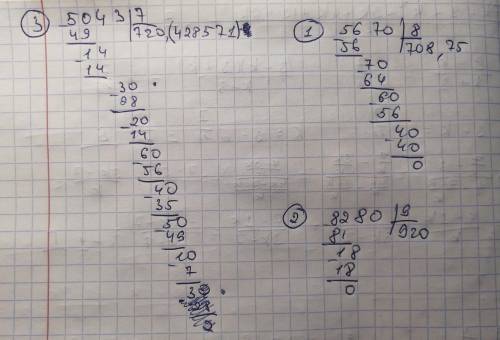 ③ 5043 | 7
49 | 720,(428571)
-14
14
-30
28
-20
14
-60
56
-40
35
-50
49
-10
7
30
① 5670 | 8
56 | 708,75
-70
64
-60
56
-40
40
0
② 8280 | 9
81 | 920
-18
18
0